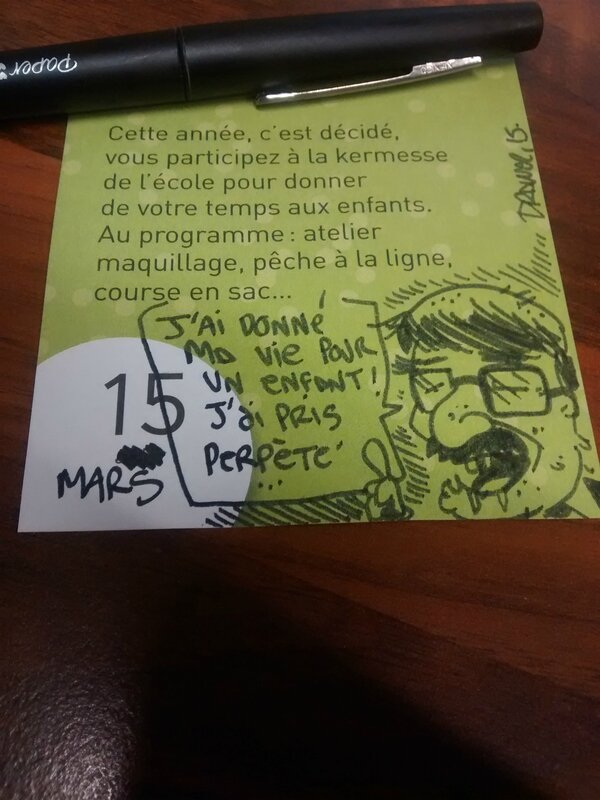 Paper
Cette année, c'est décidé,
vous participez à la kermesse
de l'école pour donner
de votre temps aux enfants.
Au programme : atelier
maquillage, pêche à la ligne,
course en sac...
J'AI DONNÉ
MA VIE POUR
UN ENFANT!
J'AI PRIS
PERPÈTE
...
15
MARS
15.